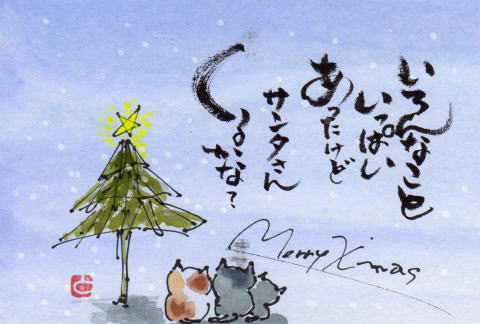 いろんなこと
いっぱい
あったけど
サンタさん
くるかな?
Merry X'mas